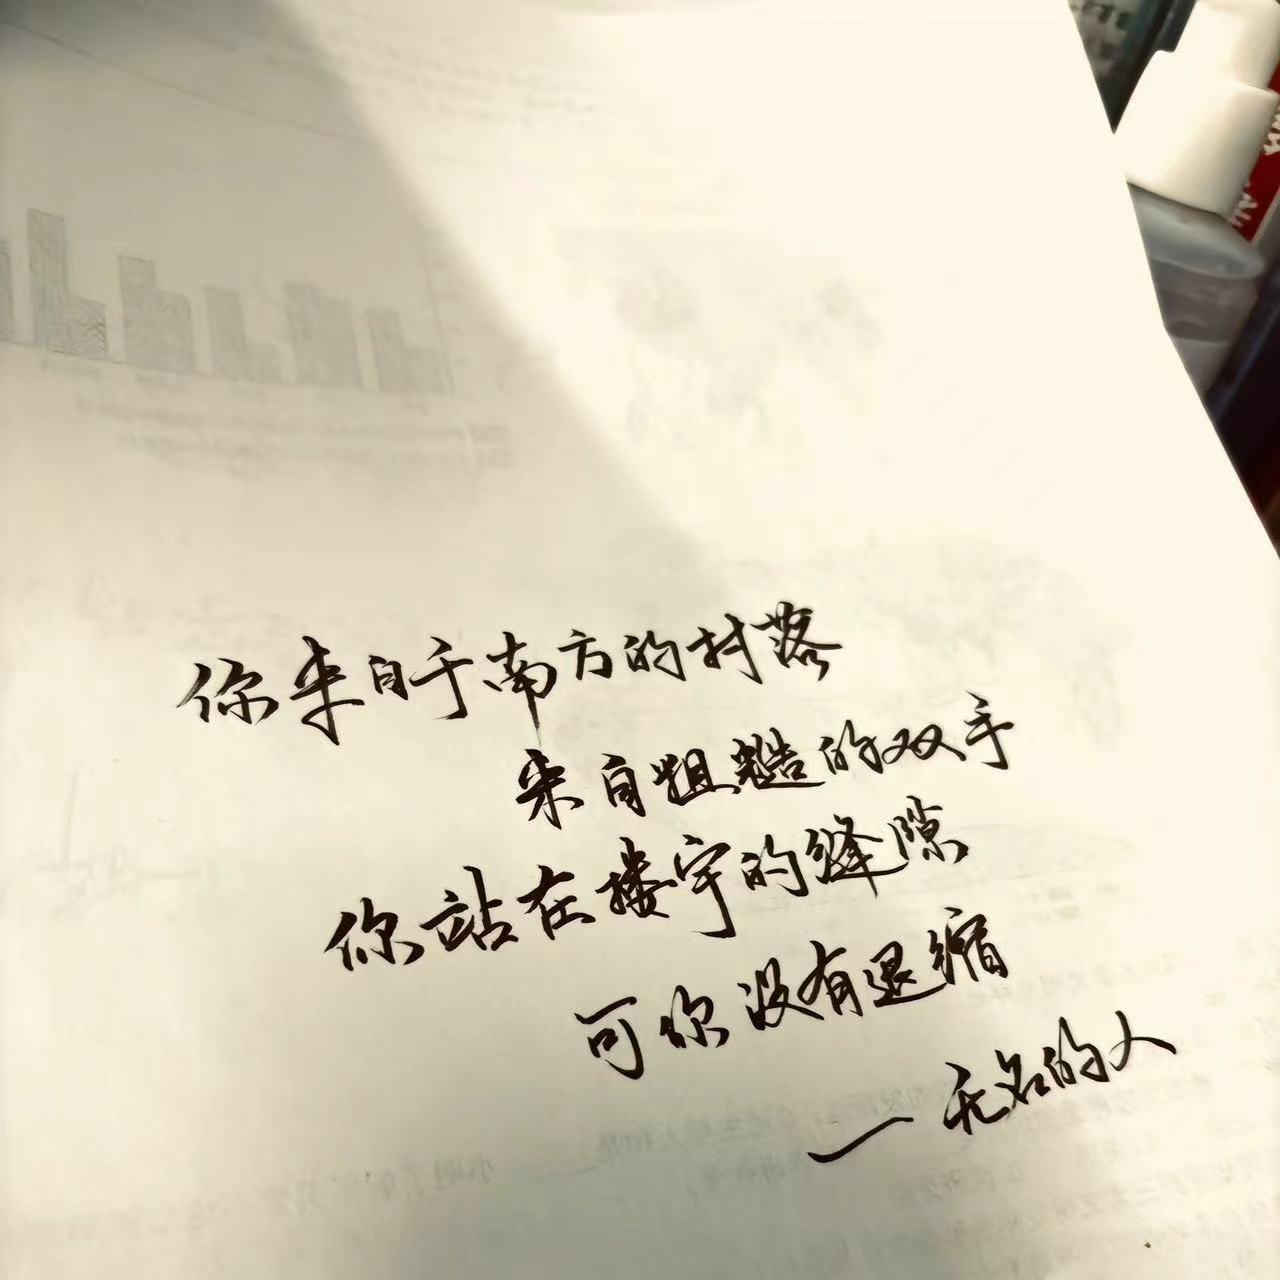 你来自于南方的村落
来自粗糙的双手
你站在楼宇的缝隙
可你没有退缩
—无名的人